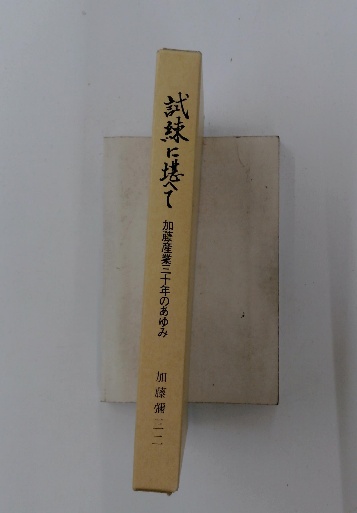 試練に堪へて
加藤産業三十年のあゆみ
加藤彌三二